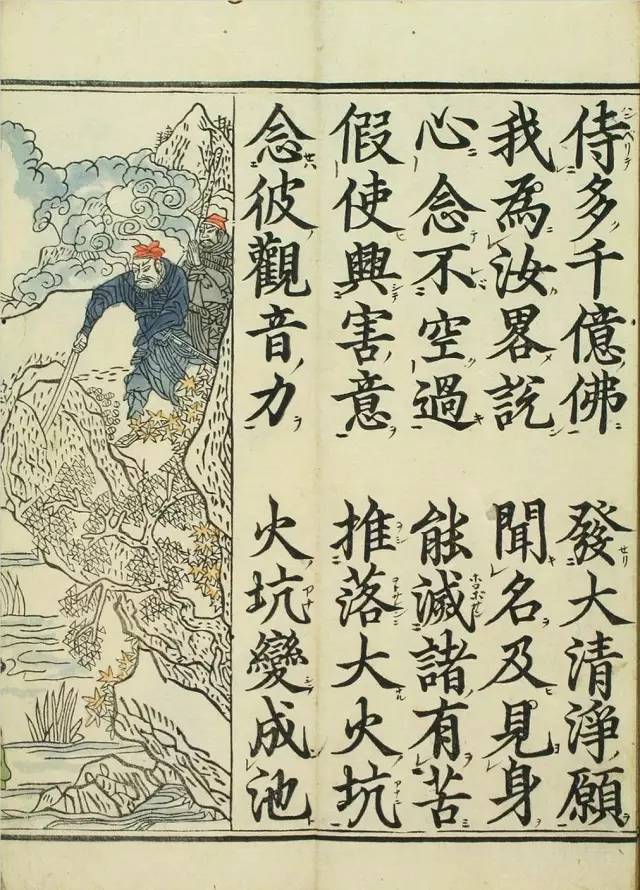 侍多千億佛　發大清淨願
我為汝畧說　聞名及見身
心念不空過　能滅諸有苦
假使興害意　推落大火坑
念彼觀音力　火坑變成池